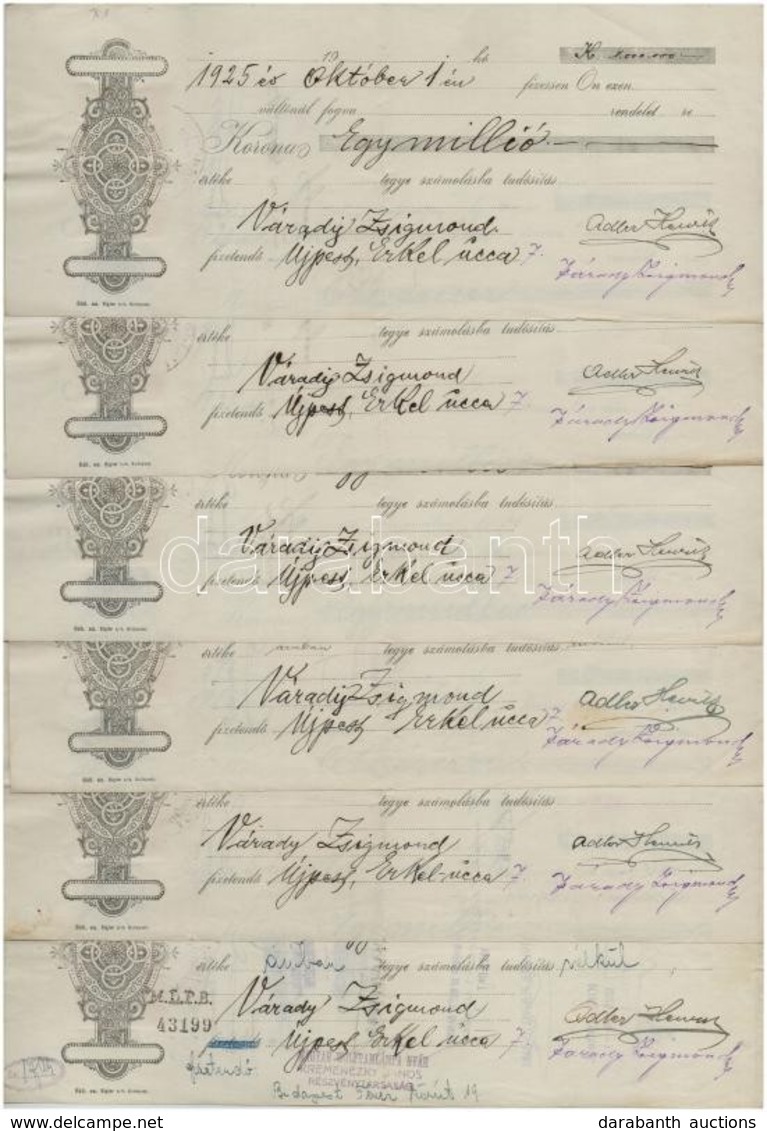 19 hó K 1.000.000
1925 év Október 1 én fizessen Ön ezen
váltónál fogva rendelet re
Korona Egy millió
értéke tegye számolásba tudósítás
Várady Zsigmond. Adler Henrik
fizetendő Újpest, Erkel ucca 7. Várady Zsigmond
értéke tegye számolásba tudósítás
Várady Zsigmond Adler Henrik
fizetendő Újpest, Erkel ucca 7 Várady Zsigmond
értéke tegye számolásba tudósítás
Várady Zsigmond Adler Henrik
fizetendő Újpest, Erkel ucca 7 Várady Zsigmond
darabanth
értéke tegye számolásba tudósítás
Várady Zsigmond Adler Henrik
fizetendő Újpest Erkel ucca 7 Várady Zsigmond
értéke tegye számolásba tudósítás
Várady Zsigmond Adler Henrik
fizetendő Újpest, Erkel-ucca 7. Várady Zsigmond
értéke áruban tegye számolásba tudósítás nélkül
M.L.F.B.
43199
Várady Zsigmond Adler Henrik
Újpest, Erkel ucca 7 Várady Zsigmond
fizetendő
KREMENEZKY JÁNOS
RÉSZVÉNYTÁRSASÁG
Budapest Teréz körút 19
www.darabanth.com darabanth auctions